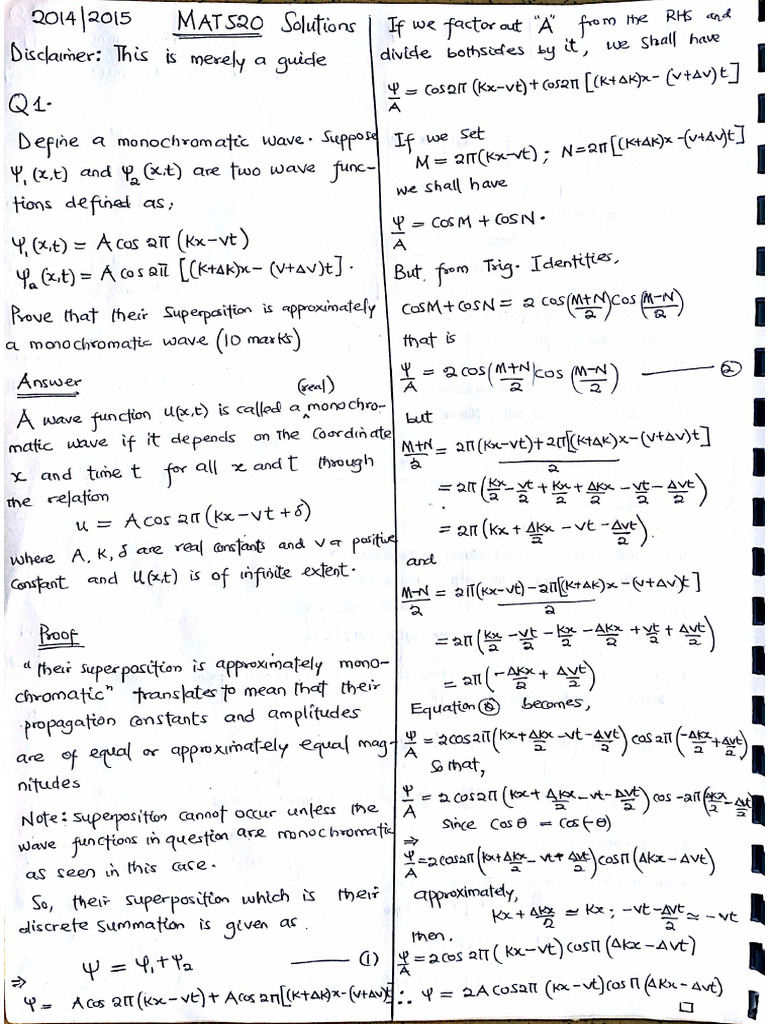 2014/2015 MAT520 Solutions
Disclaimer: This is merely a guide
Q1.
Define a monochromatic wave. Suppose
Ψ₁(x,t) and Ψ₂(x,t) are two wave func-
tions defined as;
Ψ₁(x,t) = A cos 2π (Kx-vt)
Ψ₂(x,t) = A cos 2π [(K+ΔK)x - (v+Δv)t].
Prove that their superposition is approximately
a monochromatic wave (10 marks)
Answer
A wave function u(x,t) is called a (real) monochro-
matic wave if it depends on the coordinate
x and time t for all x and t through
the relation
u = A cos 2π (Kx - vt + δ)
where A, K, δ are real constants and v a positive
constant and u(x,t) is of infinite extent.
Proof
"their superposition is approximately mono-
chromatic" translates to mean that their
propagation constants and amplitudes
are of equal or approximately equal mag-
nitudes
Note: superposition cannot occur unless the
wave functions in question are monochromatic
as seen in this case.
So, their superposition which is their
discrete summation is given as
Ψ = Ψ₁ + Ψ₂ ——— (1)
⇒
Ψ = A cos 2π (Kx-vt) + A cos 2π [(K+Δk)x - (v+Δv)t]
If we factor out "A" from the RHS and
divide bothsides by it, we shall have
Ψ/A = cos2π (Kx-vt) + cos2π [(K+ΔK)x - (v+Δv)t]
If we set
M = 2π(Kx-vt) ; N = 2π[(K+ΔK)x - (v+Δv)t]
we shall have
Ψ/A = cosM + cosN.
But from Trig. Identities,
cosM + cosN = 2 cos(M+N/2) cos(M-N/2)
that is
Ψ/A = 2 cos(M+N/2) cos (M-N/2) ——— ②
but
M+N/2 = 2π(Kx-vt) + 2π[(K+Δk)x - (v+Δv)t]/2
= 2π(Kx/2 - vt/2 + Kx/2 + Δkx/2 - vt/2 - Δvt/2)
= 2π(Kx + Δkx/2 - vt - Δvt/2).
and
M-N/2 = 2π(Kx-vt) - 2π[(K+Δk)x - (v+Δv)t]/2
= 2π(Kx/2 - vt/2 - Kx/2 - Δkx/2 + vt/2 + Δvt/2)
= 2π(-Δkx/2 + Δvt/2)
Equation ② becomes,
Ψ/A = 2cos2π(Kx + Δkx/2 - vt - Δvt/2) cos2π(-Δkx/2 + Δvt/2)
So that,
Ψ/A = 2cos2π(Kx + Δkx/2 - vt - Δvt/2) cos -2π(Δkx/2 - Δvt/2)
since cosθ = cos(-θ)
⇒
Ψ/A = 2cos2π(Kx + Δkx/2 - vt + Δvt/2) cosπ(Δkx - Δvt)
approximately,
Kx + Δkx/2 ≃ Kx ; -vt - Δvt/2 ≃ -vt
then.
Ψ/A = 2cos 2π (Kx-vt) cosπ(Δkx - Δvt)
∴ Ψ = 2A cos2π (Kx-vt) cosπ (Δkx - Δvt)
□